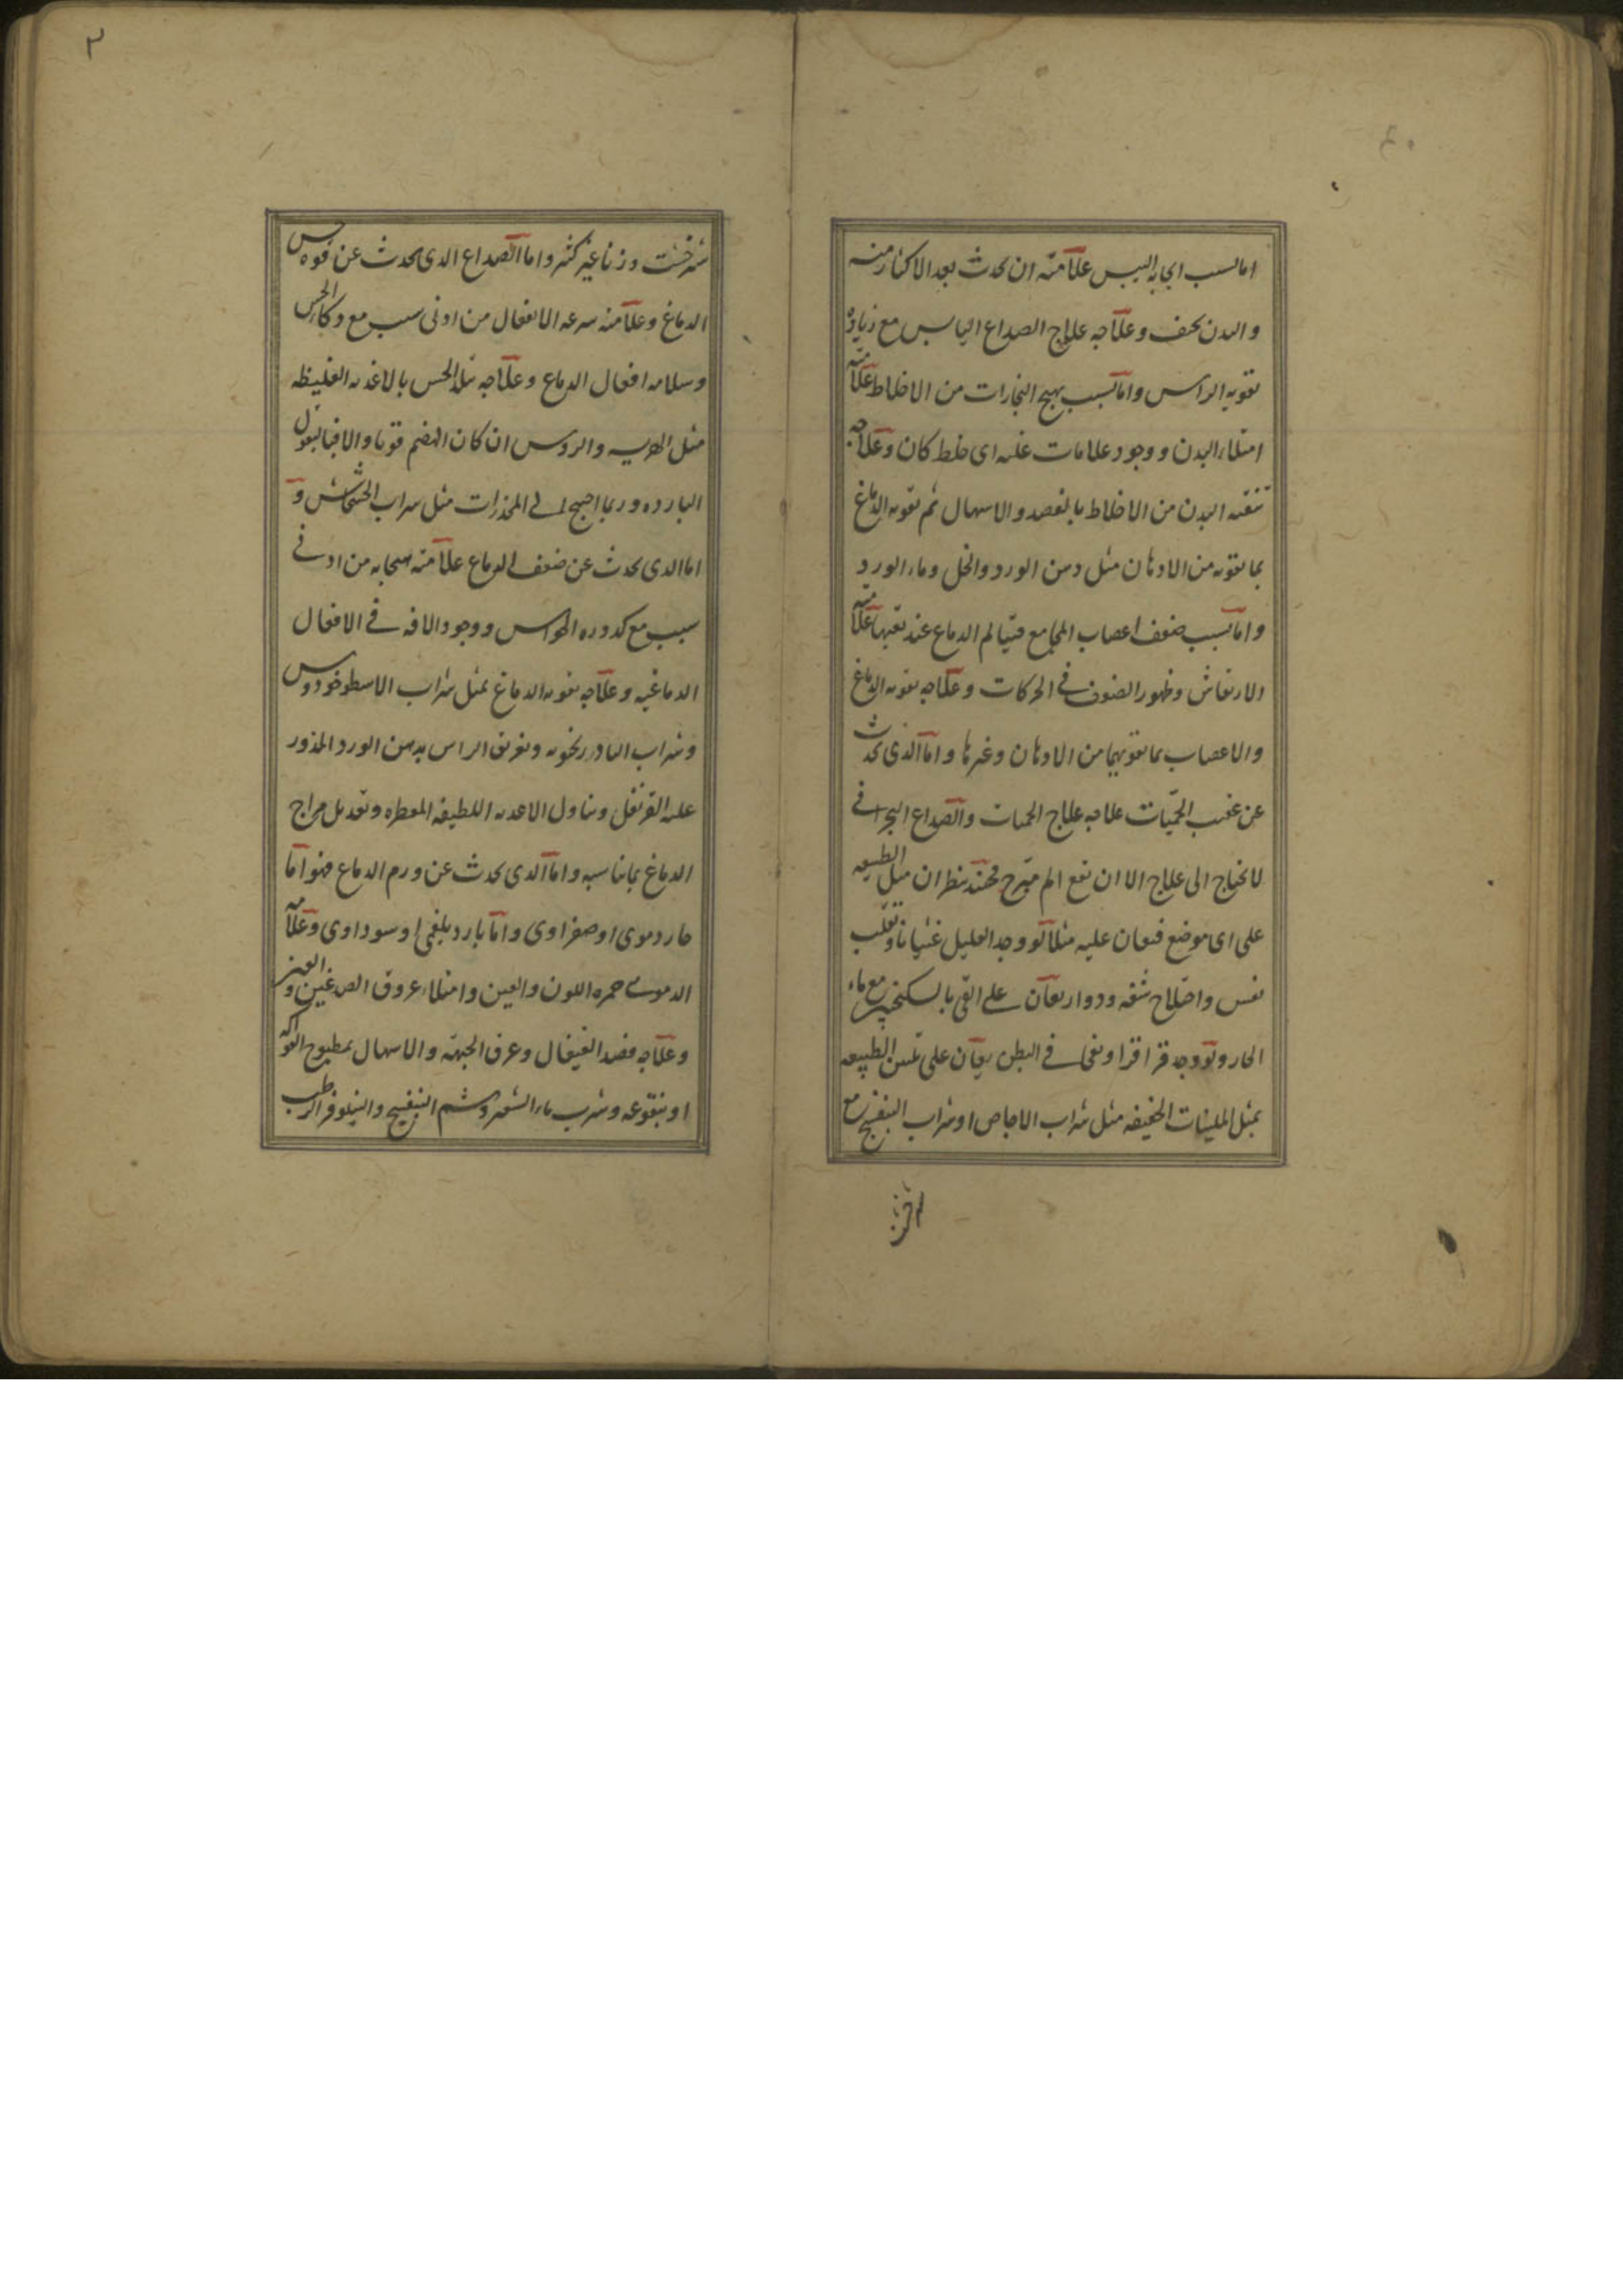 اما لسبب ايجابه اليبس علامته ان يحدث بعد الاكثار منه
والبدن نحيف وعلاجه علاج الصداع اليابس مع زيادة
تقوية الراس واما بسبب تهيج البخارات من الاخلاط علامته
امتلاء البدن ووجود علامات غلبة اى خلط كان وعلاجه
تنقية البدن من الاخلاط بالفصد والاسهال ثم تقوية الدماغ
بما تقويه من الادهان مثل دهن الورد والخل وماء الورد
واما بسبب ضعف اعصاب المجامع فيتالم الدماغ عند تعبها علامته
الارتعاش وظهور الضعف في الحركات وعلاجه تقوية الدماغ
والاعصاب بما تقويهما من الادهان وغيرها واما الذى يحدث
عن عقيب الحميات علاجه علاج الحميات والصداع البحرانى
لا يحتاج الى علاج الا ان تقع الم مبرح فحينئذ ينظر ان ميل الطبيعه
على اى موضع فيعان عليه مثلا لو وجد العليل غثيانا وتقلب
نفس واختلاج شفه ودوار يعان على القى بالسكنجبين مع ماء
الحار ولو وجد قراقرا ونفخا في البطن يعان على تليين الطبيعه
بمثل الملينات الخفيفه مثل شراب الاجاص او شراب البنفسج مع
شيرخشت وزنا غير كثير واما الصداع الذى يحدث عن قوة حس
الدماغ وعلامته سرعه الانفعال من ادنى سبب مع ذكاء الحس
وسلامه افعال الدماغ وعلاجه تبليد الحس بالاغذيه الغليظه
مثل الهريسه والروس ان كان الهضم قويا والا فبالبقول
البارده وربما احتيج الى المخدرات مثل شراب الخشخاش و
اما الذى يحدث عن ضعف الدماغ علامته هيجانه من ادنى
سبب مع كدوره الحواس ووجود الافه في الافعال
الدماغيه وعلاجه تقويه الدماغ بمثل شراب الاسطوخودوس
وشراب البادرنجويه وتغريق الراس بدهن الورد المذرور
عليه القرنفل وتناول الاغذيه اللطيفه المعطره وتعديل مزاج
الدماغ بما يناسبه واما الذى يحدث عن ورم الدماغ فهو اما
حار دموى او صفراوى واما بارد بلغمى او سوداوى وعلامة
الدموى حمره اللون والعين وامتلاء عروق الصدغين والعين
وعلاجه فصد القيفال وعرق الجبهة والاسهال بمطبوخ الفواكه
او بنقوعه وشرب ماء الشعير وشم البنفسج والنيلوفر الرطب